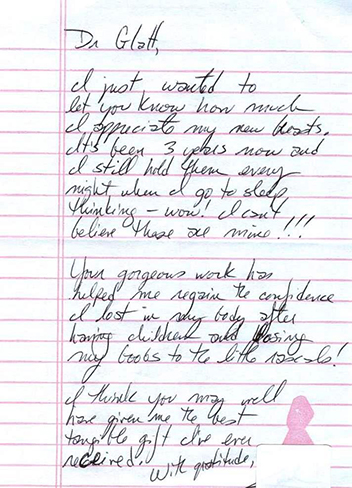 Dr Glatt,
I just wanted to
let you know how much
I appreciate my new breasts.
It's been 3 years now and
I still hold them every
night when I go to sleep
thinking - wow! I can't
believe these are mine!!!
Your gorgeous work has
helped me regain the confidence
I lost in my body after
having children and losing
my boobs to the little rascals!
I think you may well
have given me the best
tangible gift I've ever
received.
With gratitude,